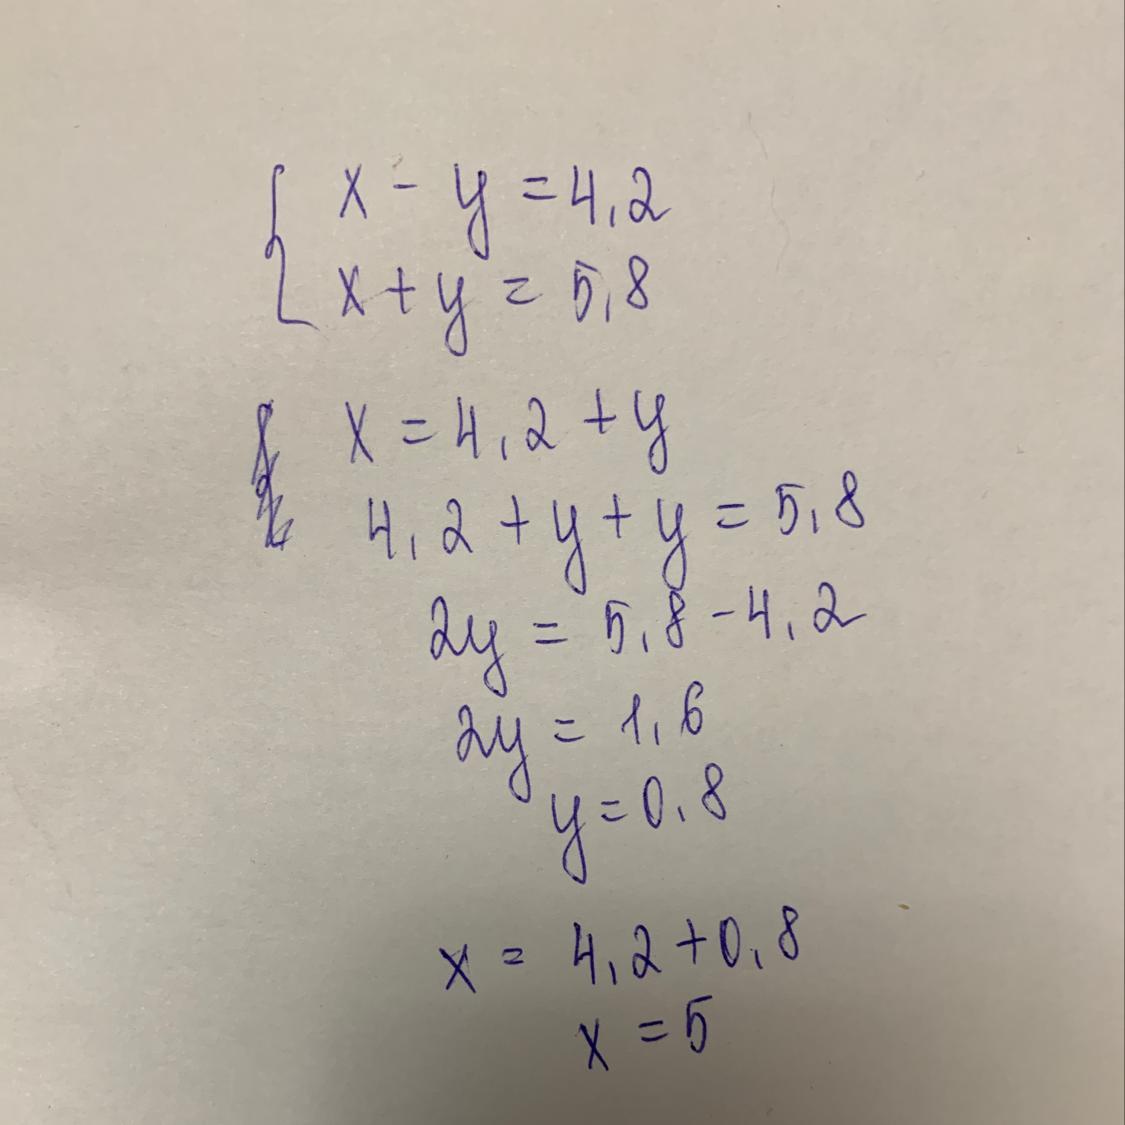 x - y = 4,2
x + y = 5,8
x = 4,2 + y
4,2 + y + y = 5,8
2y = 5,8 - 4,2
2y = 1,6
y = 0,8
x = 4,2 + 0,8
x = 5